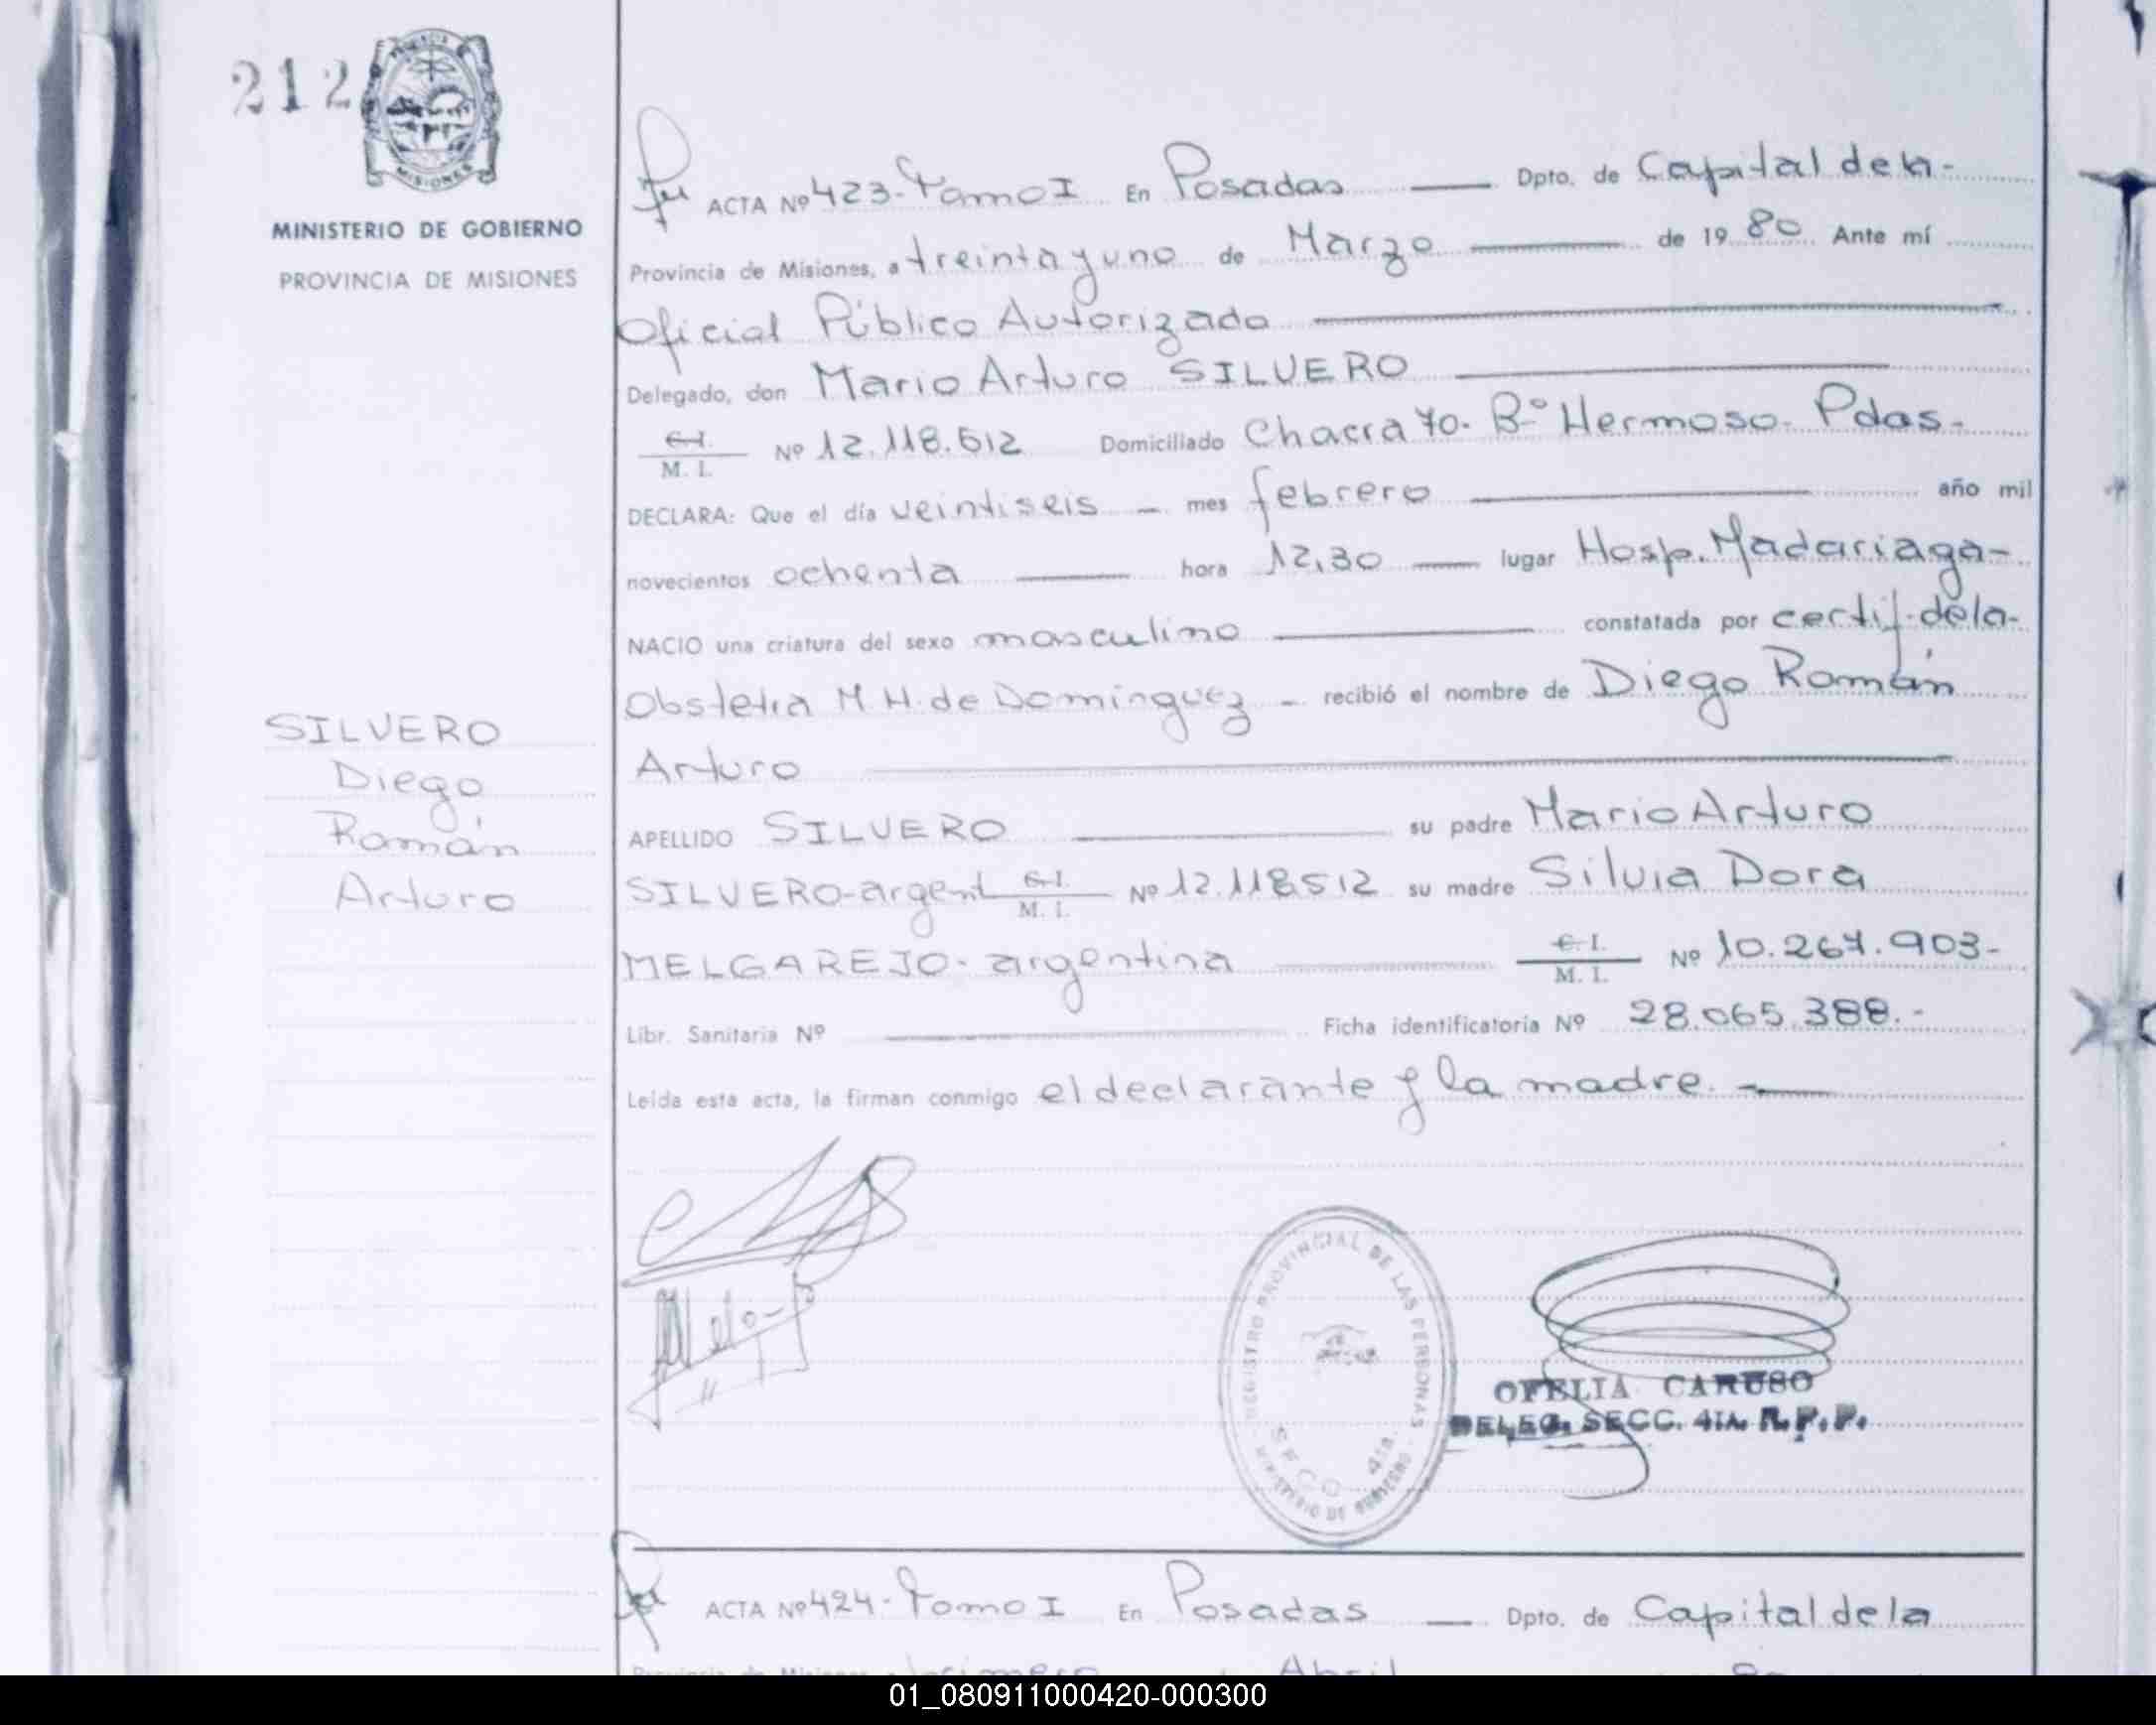 212
MISIONES
MINISTERIO DE GOBIERNO
PROVINCIA DE MISIONES
ACTA Nº 423- Tomo I En Posadas Dpto. de Capital de la-
Provincia de Misiones, a treinta y uno de Marzo de 1980. Ante mí
Oficial Público Autorizado
Delegado, don Mario Arturo SILVERO
C.I.
M. I. Nº 12.118.512 Domiciliado Chacra 70. Bº Hermoso. Pdas-
DECLARA: Que el día veintiseis - mes febrero año mil
novecientos ochenta hora 12,30 lugar Hosp. Madariaga-
NACIO una criatura del sexo masculino constatada por certif. de la-
Obstetra M. H. de Dominguez - recibió el nombre de Diego Román
Arturo
APELLIDO SILVERO su padre Mario Arturo
SILVERO-argent C.I.
M. I. Nº 12.118.512 su madre Silvia Dora
MELGAREJO- argentina C.I.
M. I. Nº 10.267.903-
Libr. Sanitaria Nº Ficha identificatoria Nº 28.065.388.-
Leída esta acta, la firman conmigo el declarante y la madre.
SILVERO
Diego
Román
Arturo
REGISTRO PROVINCIAL DE LAS PERSONAS
SECC. 4ta.
MINISTERIO DE GOBIERNO
OFELIA CARUSO
DELEG. SECC. 4TA. R.P.P.
ACTA Nº 424- Tomo I En Posadas Dpto. de Capital de la
Provincia de Misiones, a primero Abril 80
01_080911000420-000300